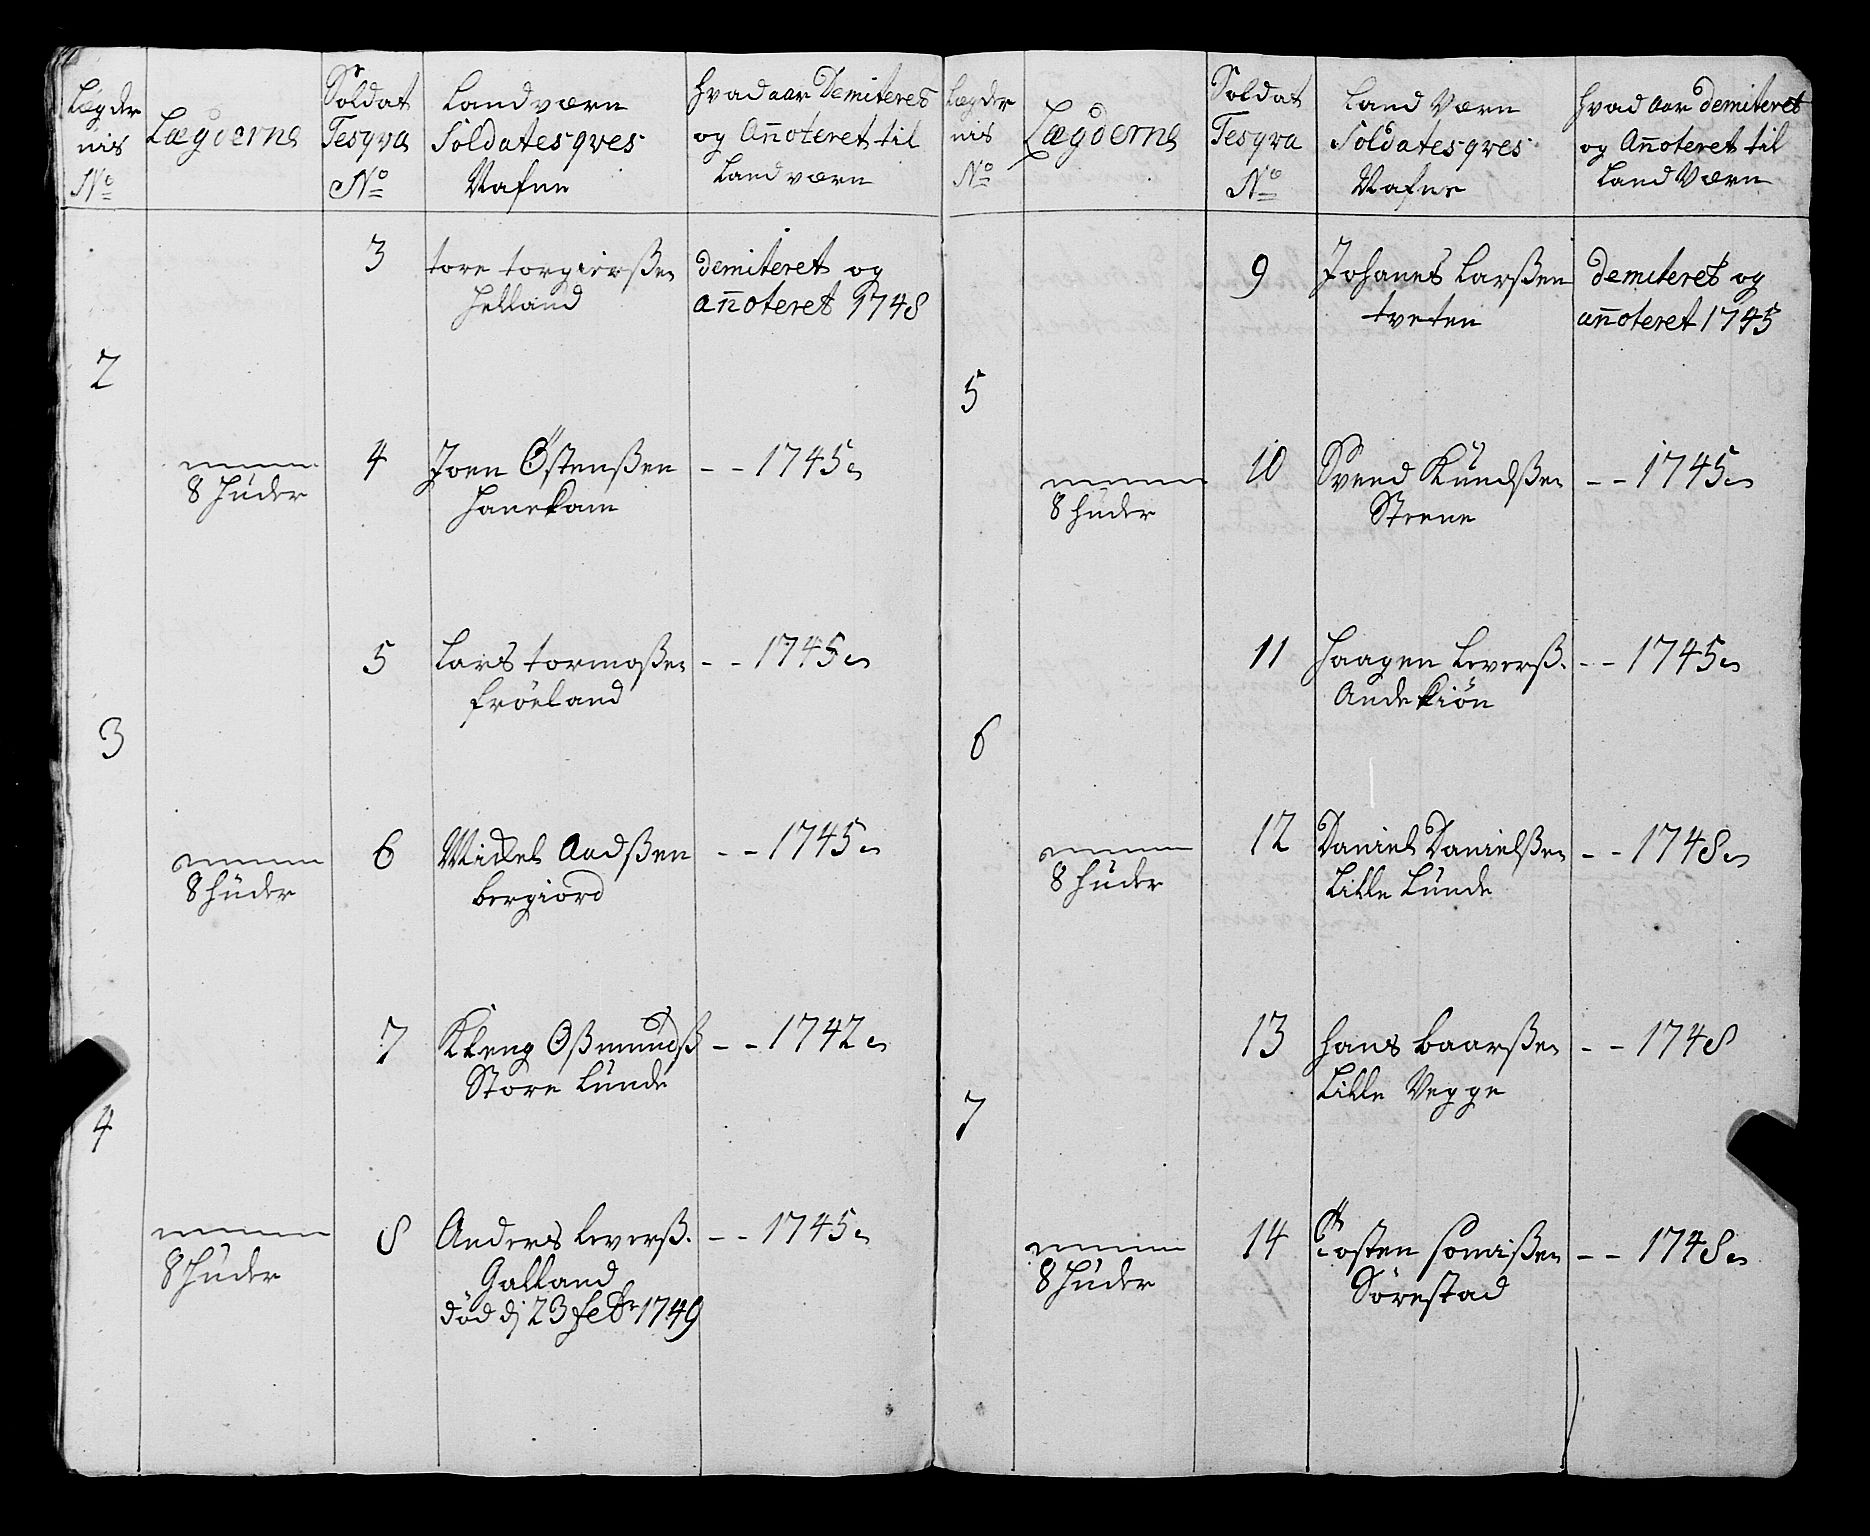 Lægder
nis
No
Lægderne
Soldat
Tesqva
No
Landværn
Soldatesqves
Nafne
hvad aar Demiteret
og Annoteret til
Landværn
3
tore torgierßen
Helland
demiteret og
annoteret 1748
2
8 Huder
4
Joen Östenßen
Hanekam
- - 1745
5
Lars tormoßen
fröeland
- - 1745
3
8 Huder
6
Mickel Aadßen
bergiord
- - 1745
7
Kleng Oßmundß
Store Lunde
- - 1742
4
8 Huder
8
Anders Leverß.
Galland
död dj 23 febr 1749
- - 1745
Lægder
nis
No
Lægderne
Soldat
Tesqva
No
Land Værn
Soldatesqves
Nafne
hvad aar demiteret
og Annoteret til
Land Værn
9
Johanes Larßen
tveten
demiteret og
annoteret 1745
5
8 huder
10
Svend Kundßen
Steene
- - 1745
11
Haagen Leverß.
Andekiön
- - 1745
6
8 Huder
12
Daniel Danielßen
Lille Lunde
- - 1748
13
Hans baarßen
Lille Vegge
- - 1748
7
8 Huder
14
Tosten
Sörestad
- - 1748